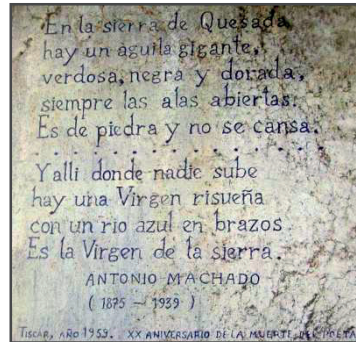 En la sierra de Quesada
hay un aguila gigante,
verdosa, negra y dorada,
siempre las alas abiertas.
Es de piedra y no se cansa.
Y alli donde nadie sube
hay una Virgen risueña
con un rio azul en brazos
Es la Virgen de la sierra.
ANTONIO MACHADO
(1875 – 1939)
TISCAR, AÑO 1959. XX ANIVERSARIO DE LA MUERTE DEL POETA